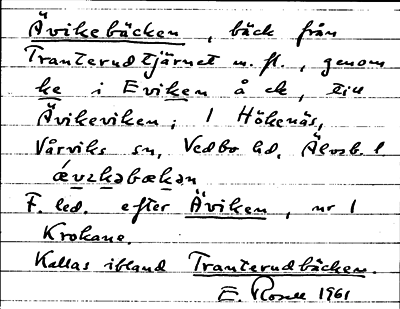 Ävikebäcken, bäck från
Tranterudtjärnet m. fl., genom
ke i Eviken å ek, till
Ävikeviken; 1 Hökenäs,
Vårviks sn, Vedbo hd, Älvsb. l
F. led. efter Äviken, nr 1
Krokane.
Kallas ibland Tranterudbäcken.
E. Rosell 1961